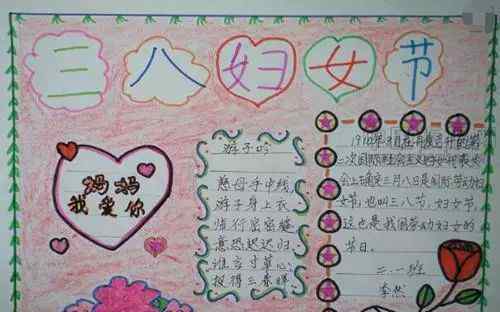 三八妇女节
妈妈
我爱你
游子吟
慈母手中线
游子身上衣
临行密密缝
意恐迟迟归
谁言寸草心
报得三春晖
1910年8月在丹麦召开的第
二次国际社会主义妇女代表大
会上确定三月八日是国际劳动妇
女节,也叫三八节、妇女节,
这也是我国劳动妇女的
节日。
二.一班
李然